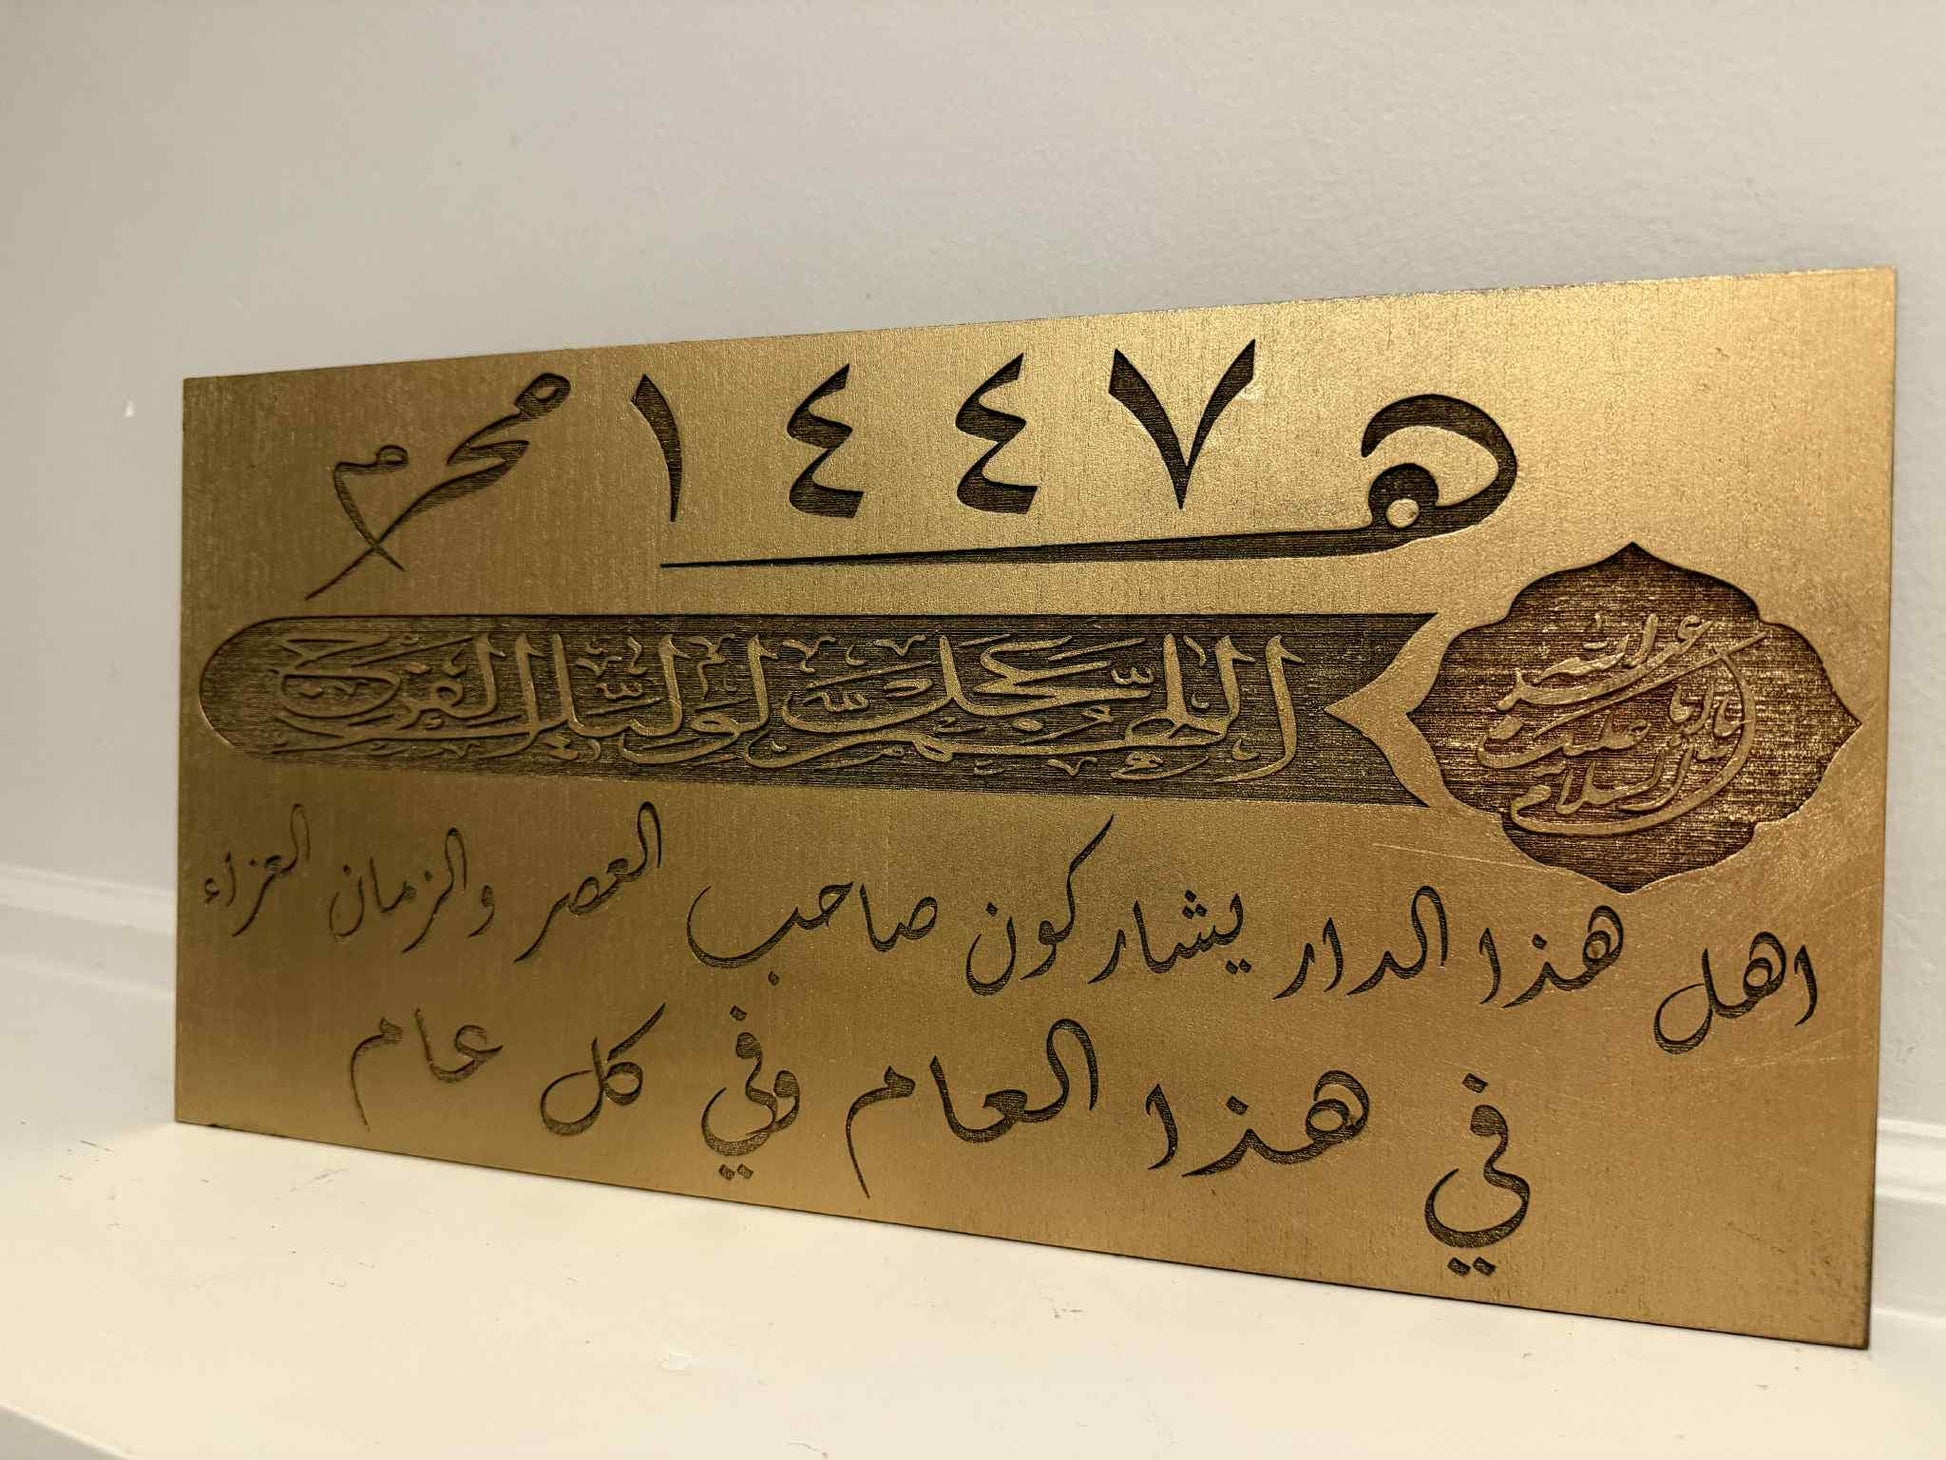 محرم ١٤٤٧ هـ
اللهم عجل لوليك الفرج
السلام عليك يا ابا عبد الله
اهل هذا الدار يشاركون صاحب العصر والزمان العزاء
في هذا العام وفي كل عام